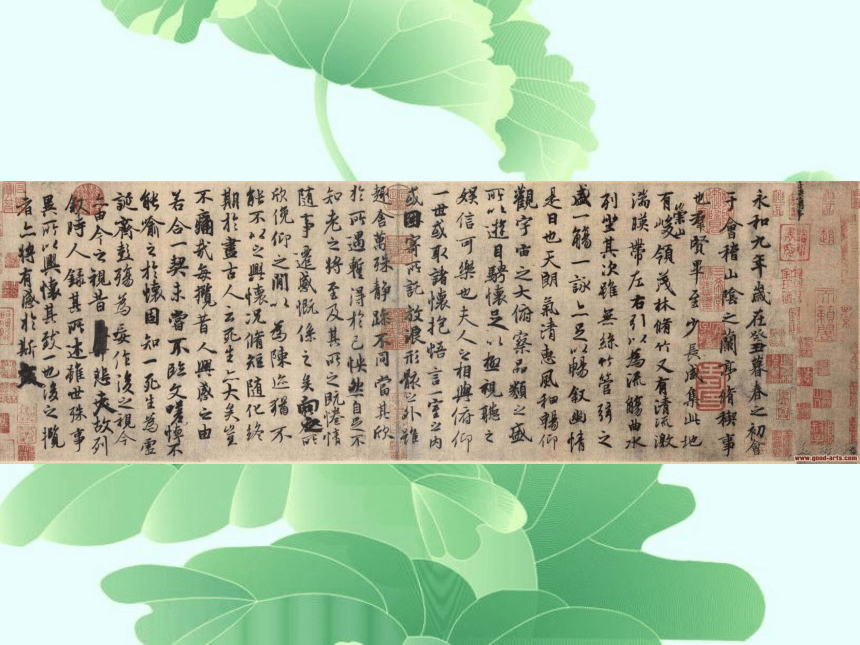 永和九年歲在癸丑暮春之初會
于會稽山陰之蘭亭脩稧事
也羣賢畢至少長咸集此地
有崇山峻領茂林脩竹又有清流激
湍暎帶左右引以為流觴曲水
列坐其次雖無絲竹管弦之
盛一觴一詠亦足以暢叙幽情
是日也天朗氣清惠風和暢仰
觀宇宙之大俯察品類之盛
所以遊目騁懷足以極視聽之
娛信可樂也夫人之相與俯仰
一世或取諸懷抱悟言一室之內
或因寄所託放浪形骸之外雖
趣舍萬殊靜躁不同當其欣
於所遇暫得於己怏然自足不
知老之將至及其所之既惓情
隨事遷感慨係之矣向之所
欣俛仰之閒以為陳迹猶不
能不以之興懷況脩短隨化終
期於盡古人云死生亦大矣豈
不痛哉每攬昔人興感之由
若合一契未嘗不臨文嗟悼不
能喻之於懷固知一死生為虛
誕齊彭殤為妄作後之視今
亦由今之視昔悲夫故列
叙時人錄其所述雖世殊事
異所以興懷其致一也後之攬
者亦將有感於斯文
www.good-arts.com